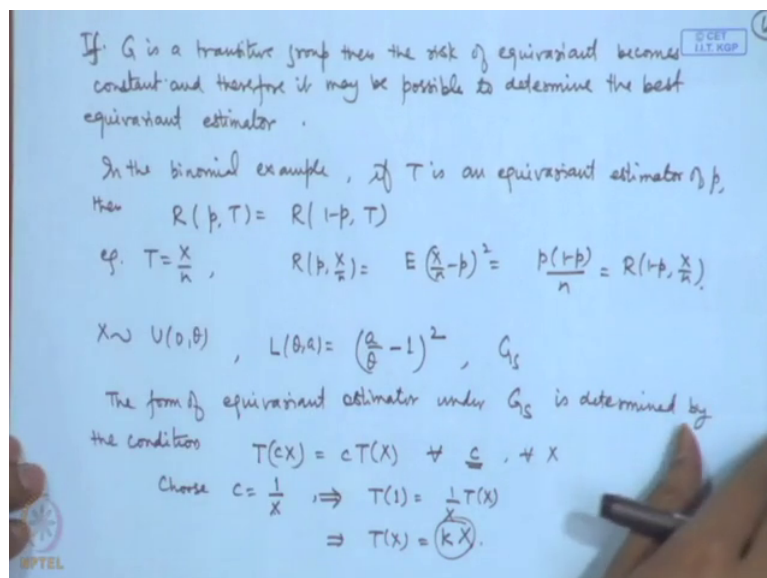 If. G is a transitive group then the risk of equivariant becomes
constant and therefore it may be possible to determine the best
equivariant estimator.
© CET
I.I.T. KGP
In the binomial example, if T is an equivariant estimator of p,
then R(p,T) = R(1-p, T)
eg. T = X/n, R(p, X/n) = E(X/n - p)² = p(1-p)/n = R(1-p, X/n).
X ~ U(0,θ), L(θ,a) = (a/θ - 1)², G_s
The form of equivariant estimator under G_s is determined by
the condition T(cX) = cT(X) ∀ c, ∀ X
Choose c = 1/X, ⇒ T(1) = 1/X T(X)
⇒ T(X) = kX.
NPTEL